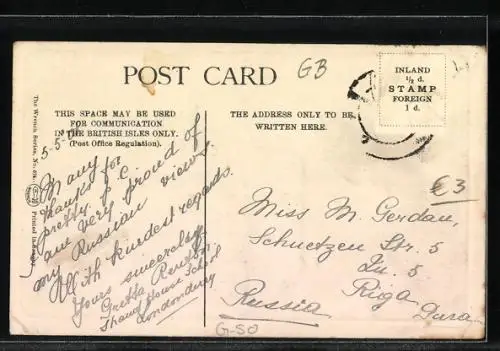 POST CARD
GB
INLAND
½ d.
STAMP
FOREIGN
1 d.
THIS SPACE MAY BE USED
FOR COMMUNICATION
IN THE BRITISH ISLES ONLY.
(Post Office Regulation).
THE ADDRESS ONLY TO BE
WRITTEN HERE.
The Wrench Series, No.
Printed in
5-5-
Many
thanks for
pretty P.C.
am very proud of
my Russian views.
With kindest regards.
Yours sincerely
Gretta
House School
Londonderry
€3
Miss M. Gerdau,
Schuetzen Str. 5
Qu. 5
Riga
Russia
G-50